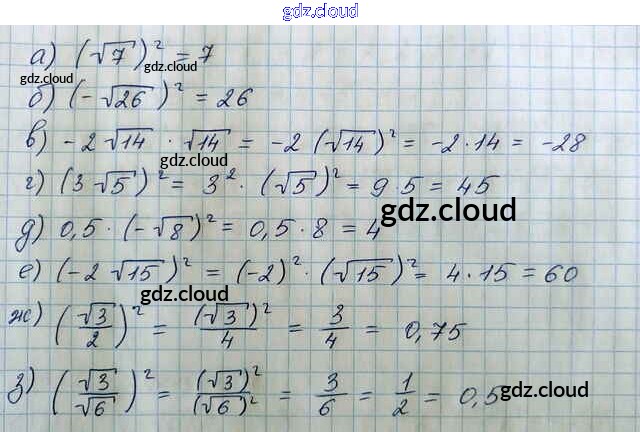 gdz.cloud
а) (√7)² = 7
gdz.cloud gdz.cloud
б) (-√26)² = 26
в) -2√14 · √14 = -2(√14)² = -2·14 = -28
gdz.cloud
г) (3√5)² = 3² · (√5)² = 9·5 = 45
gdz.cloud
д) 0,5·(-√8)² = 0,5·8 = 4
е) (-2√15)² = (-2)²·(√15)² = 4·15 = 60
gdz.cloud
ж) (√3/2)² = (√3)²/4 = 3/4 = 0,75
з) (√3/√6)² = (√3)²/(√6)² = 3/6 = 1/2 = 0,5
gdz.cloud